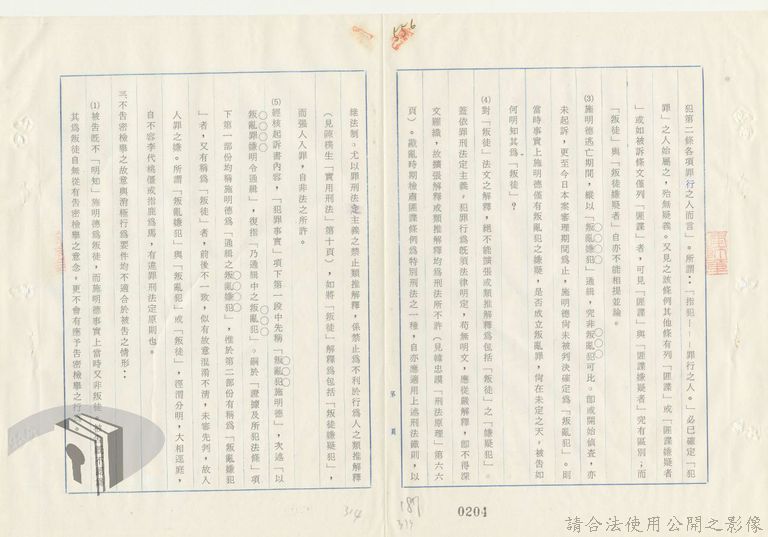 556
犯第二條各項罪行之人而言」。所謂：「指犯——罪行之人。」必已確定「犯
罪」之人始屬之，殆無疑義。又見之該條例其他條有列「匪諜」或「匪諜嫌疑者
」或如被訴條文僅列「匪諜」者，可見「匪諜」與「匪諜嫌疑者」究有區別；而
「叛徒」與「叛徒嫌疑者」自亦不能相提並論。
⑶施明德逃亡期間，縱以「叛亂嫌犯」通緝，究非叛亂犯可比。即或開始偵查，亦
未起訴，更至今日本案審理期間為止，施明德尚未被判決確定為「叛亂犯」。則
當時事實上施明德僅有叛亂犯之嫌疑，是否成立叛亂罪，尚在未定之天，被告如
何明知其為「叛徒」？
⑷對「叛徒」法文之解釋，絕不能擴張或類推解釋為包括「叛徒」之「嫌疑犯」。
蓋依罪刑法定主義，犯罪行為既須法律明定，苟無明文，應從嚴解釋，即不得深
文羅織，故擴張解釋或類推解釋均為刑法所不許（見韓忠謨「刑法原理」第六六
頁）。戡亂時期檢肅匪諜條例為特別刑法之一種，自亦應適用上述刑法鐵則，以
第　頁
維法制。尤以罪刑法定主義之禁止類推解釋，係禁止為不利於行為人之類推解釋
（見陳樸生「實用刑法」第十頁），如將「叛徒」解釋為包括「叛徒嫌疑犯」，
而強人入罪，自非法之所許。
⑸經核起訴書內容，「犯罪事實」項下第一段中先稱「叛亂犯施明德」，次述「以
叛亂罪嫌明令通緝」，復指「乃通緝中之叛亂犯」。嗣於「證據及所犯法條」項
下第一部份均稱施明德為「通緝之叛亂嫌犯」，惟於第二部份有稱為「叛亂嫌犯
」者，又有稱為「叛徒」者，前後不一致，似有故意混淆不清，未審先判，故入
人罪之嫌。所謂「叛亂嫌犯」與「叛亂犯」或「叛徒」，徑渭分明，大相逕庭，
自不容李代桃僵或指鹿為馬，有違罪刑法定原則也。
三不告密檢舉之故意與消極行為要件均不適合於被告之情形：
⑴被告既不「明知」施明德為叛徒，而施明德事實上當時又非叛徒，
其為叛徒自無從有告密檢舉之意念，更不會有應予告密檢舉之行
314
187
0204
請合法使用公開之影像